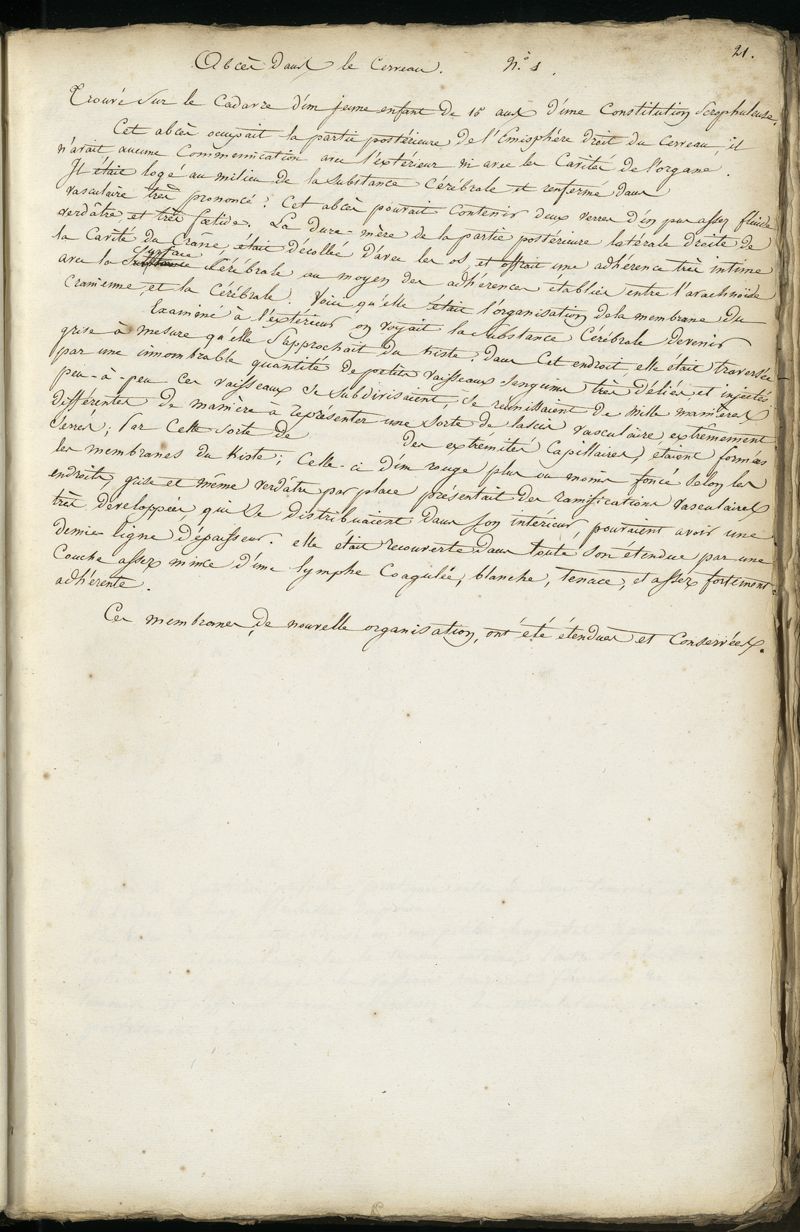 21.
Abcès Dans le Cerveau. N.º 1.
Trouvé sur le Cadavre d'un jeune enfant de 10 ans d'une Constitution Scrophuleuse.
Cet abcès occupait la partie postérieure de l'Émisphère droit du Cerveau, il
n'avait aucune Communication avec l'extérieur ni avec les Cavités de l'organe.
Il était logé au milieu de la substance Cérébrale et renfermé dans
vasculaire très prononcé; Cet abcès pouvait Contenir deux verres d'un pus assez fluide
verdâtre et très fœtide. La Dure-mère de la partie postérieure latérale droite de
la Cavité du Crâne était décollée d'avec les os, et offrait une adhérence très intime
avec la Substance surface Cérébrale au moyen des adhérences établies entre l'arachnoïde
Cranienne et la Cérébrale. Voici qu'elle était l'organisation de la membrane du
Examiné à l'extérieur on voyait la substance Cérébrale devenir
grise à mesure qu'elle s'approchait du kiste; dans Cet endroit, elle était traversée
par une innombrable quantité de petits vaisseaux sanguins très déliés et injectés
peu-à-peu Ces vaisseaux se subdivisaient, se réunissaient de mille manières
différentes de manière à représenter une sorte de lascis vasculaire extrêmement
serrés; Par Cette sorte de des extrémités Capillaires) étaient formées
les membranes du kiste; Celle-ci d'un rouge plus ou moins foncé selon les
endroits, grise et même verdâtre par place présentait des ramifications vasculaires
très developpées qui se distribuaient dans son intérieur, pouvaient avoir une
demie ligne d'épaisseur. elle était recouverte dans toute son étendue par une
Couche assez mince d'une lymphe Coagulée, blanche, tenace, et assez fortement
adhérente.
Ces membranes de nouvelle organisation, ont été étendues et Conservées.